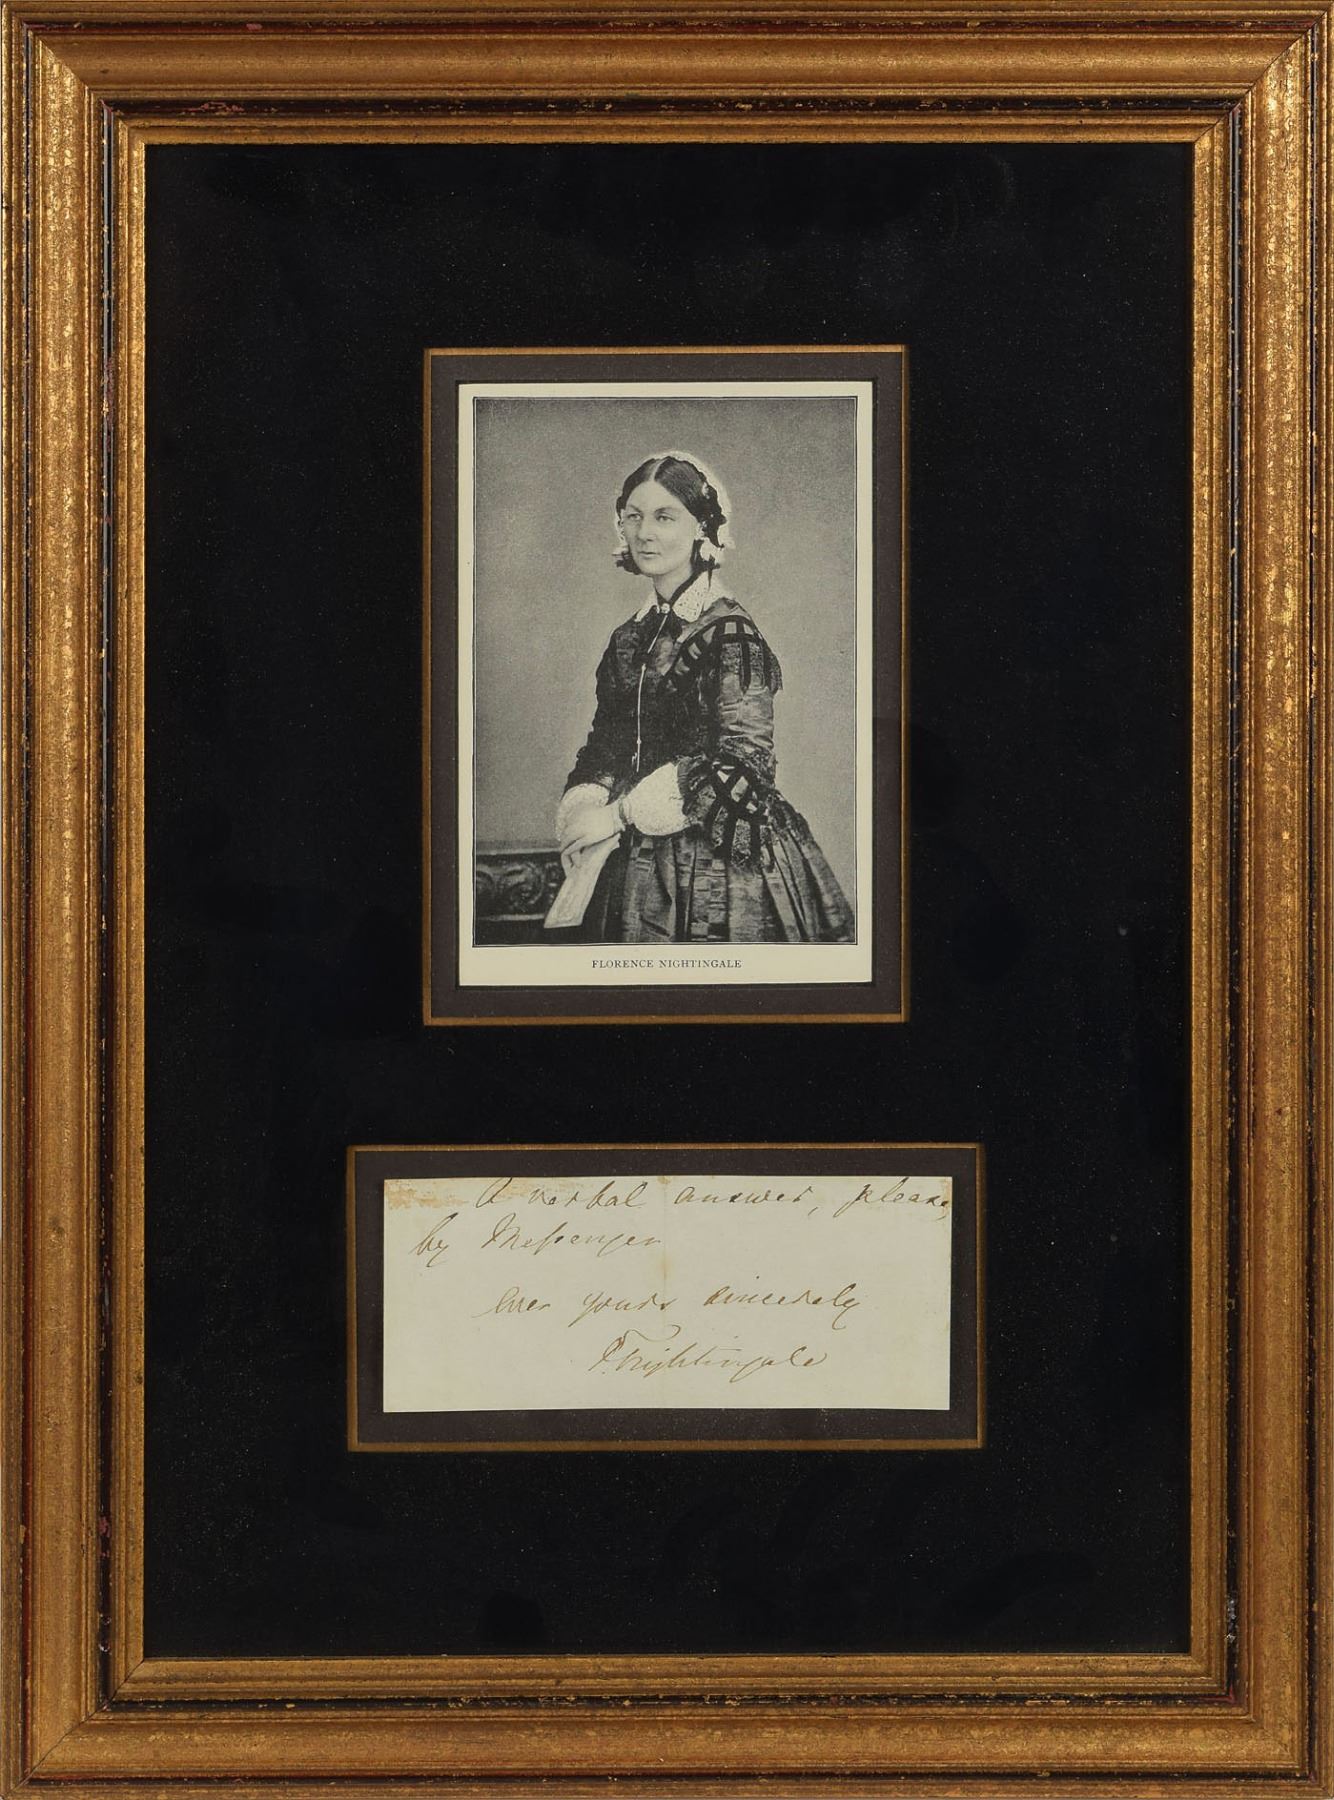 FLORENCE NIGHTINGALE
A verbal answer, please,
by Messenger
ever yours sincerely
F. Nightingale